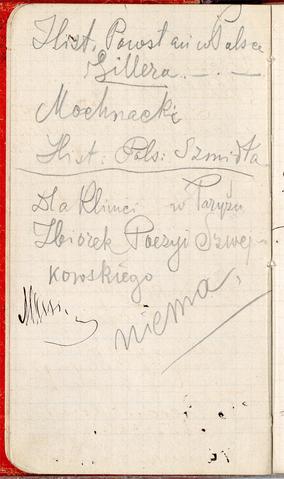 Hist. Powstań w Polsce
Gillera. — . —
Mochnacki
Hist: Pols: Szmidta
Dla Klimci w Paryżu
Zbiorek Poezyi Szwej-
kowskiego
niema.